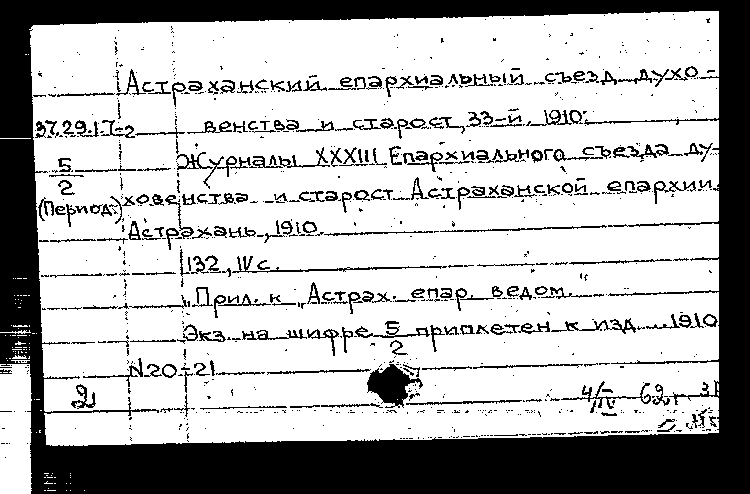 Астраханский епархиальный съезд духо-
37.29.1.7=2 венства и старост, 33-й. 1910.
5/2 Журналы XXXIII Епархиального съезда ду-
(Период.) ховенства и старост Астраханской епархии.
Астрахань, 1910.
132, IV с.
"Прил. к "Астрах. епар. ведом."
Экз. на шифре 5/2 приплетен к изд. ... 1910
N20-21
2 4/IV 62 г.